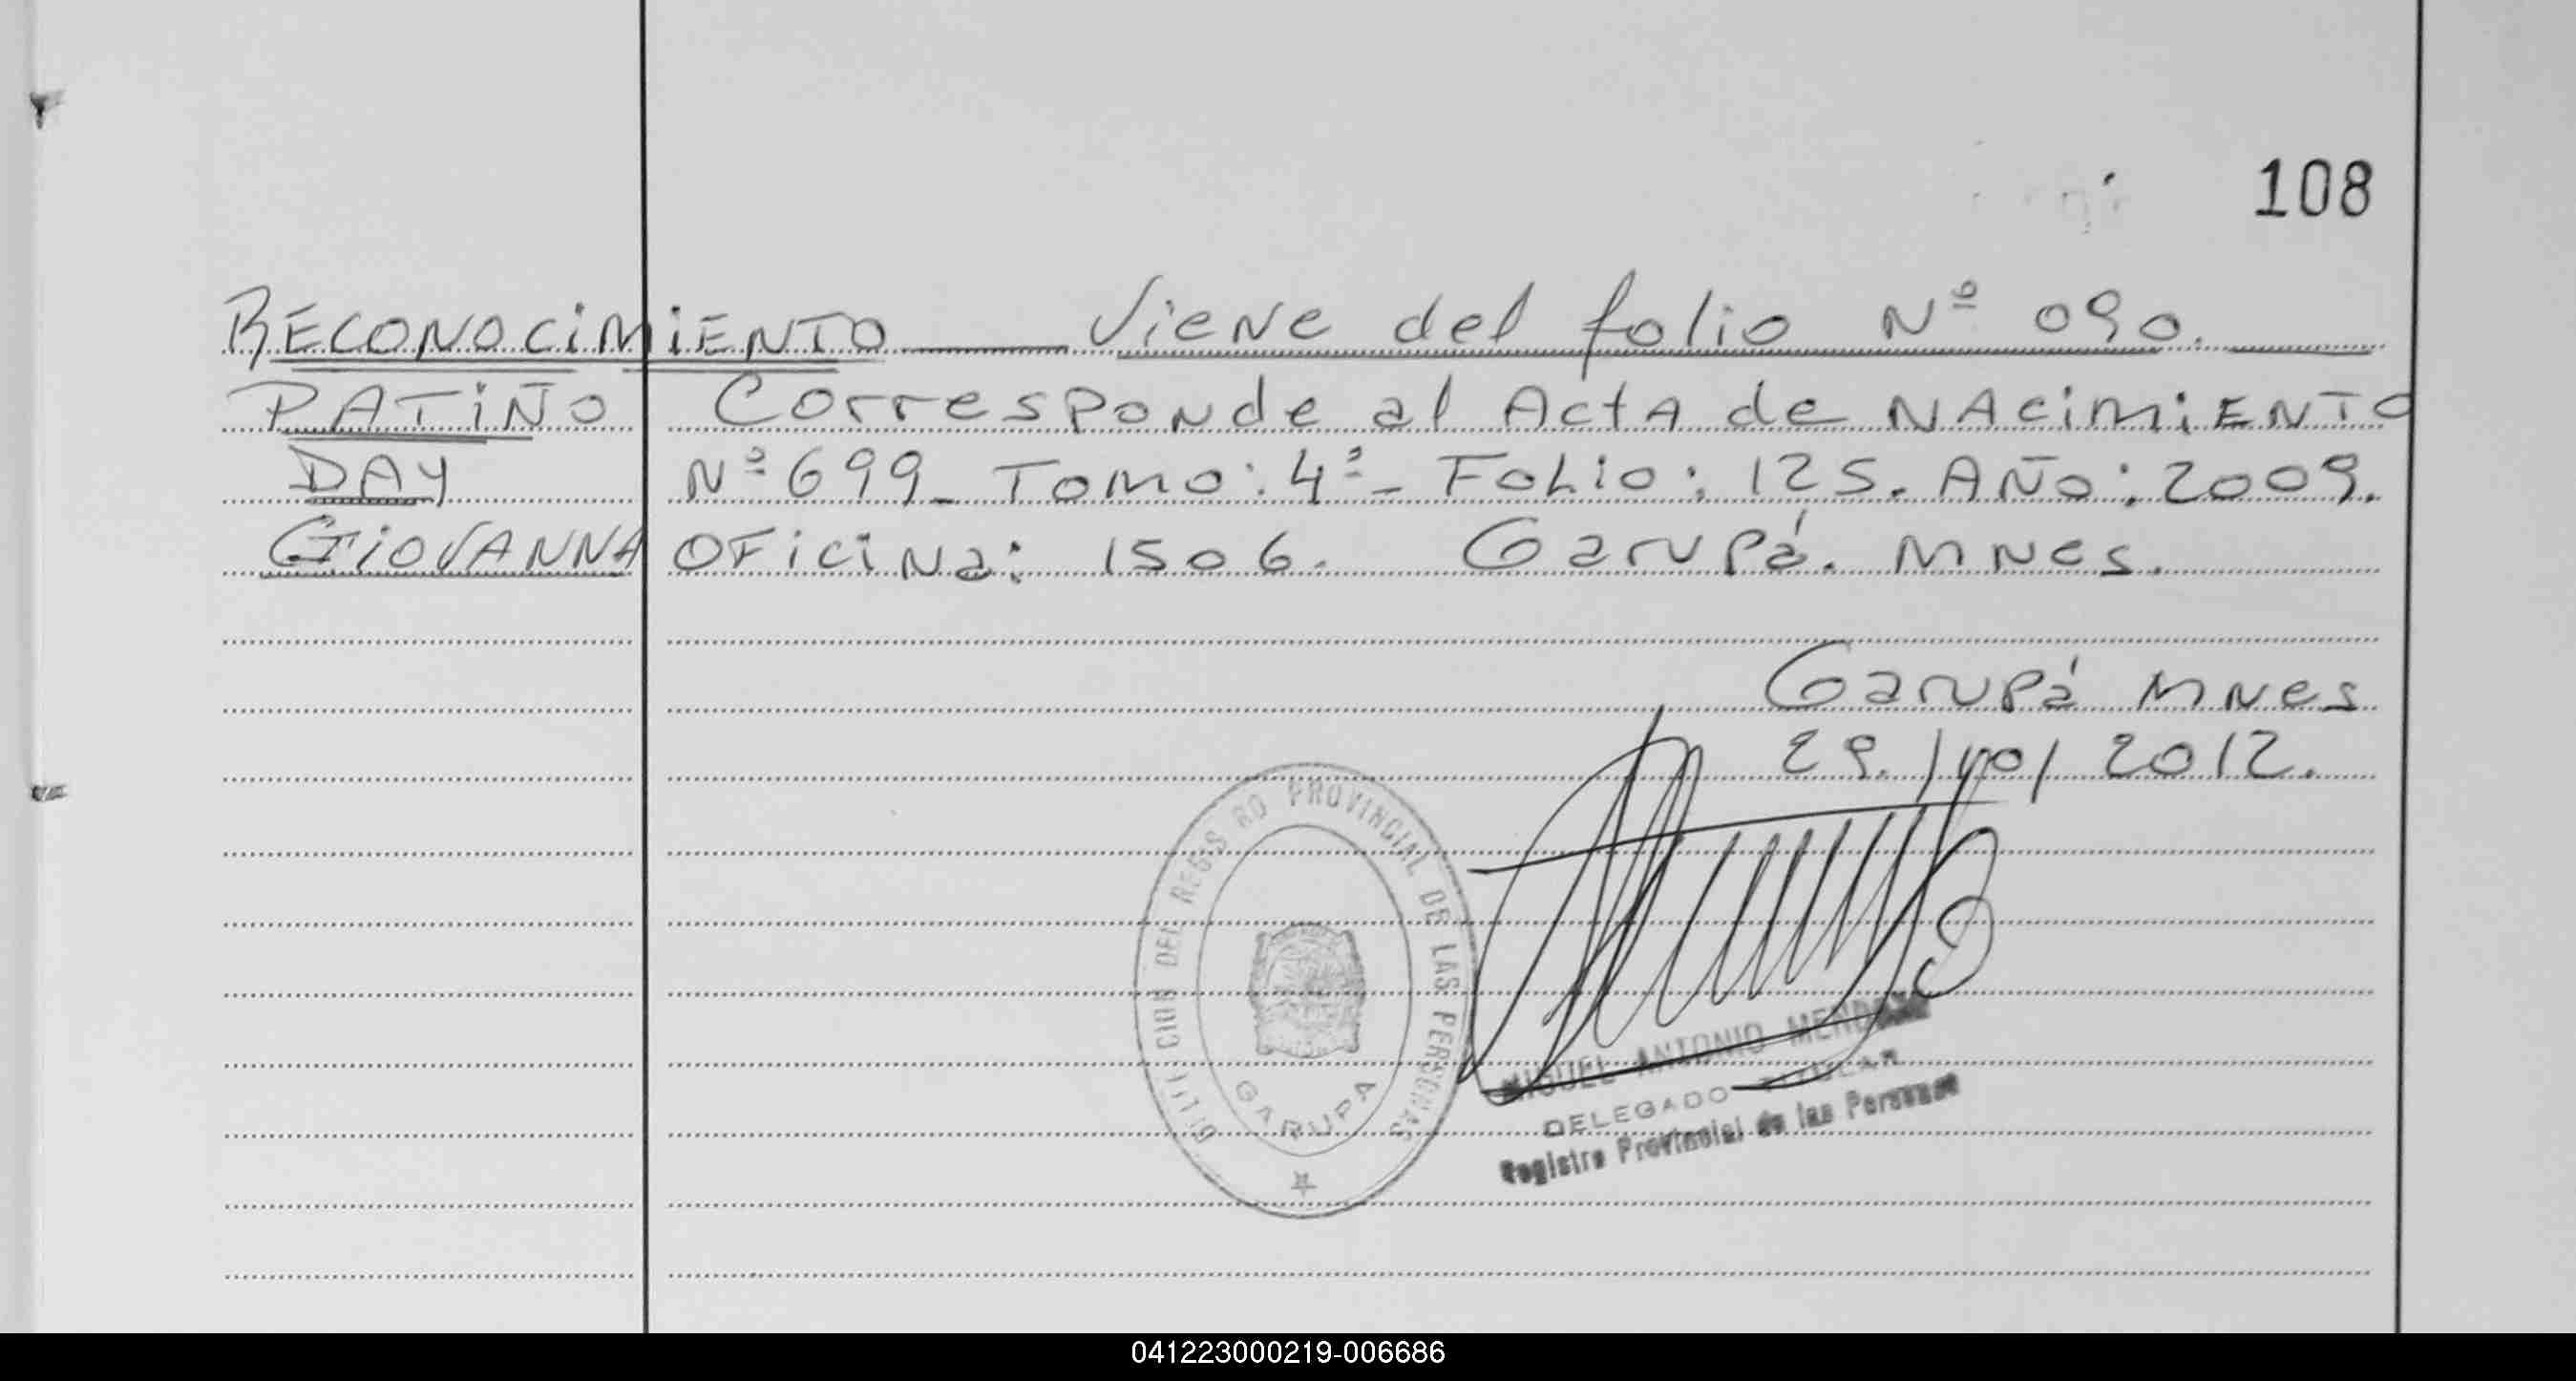 108
RECONOCIMIENTO — Viene del folio Nº 090.
PATIÑO Corresponde al Acta de NAcimiENTO
DAY Nº 699_ Tomo: 4º - Folio: 125. Año: 2009.
GIOVANNA OFicina: 1506. Garupá. MNes.
Garupá MNes
29./10/2012.
CION DEL REGIS RO PROVINCIAL DE LAS PERSONAS
GARUPA
MIGUEL ANTONIO
DELEGADO TITULAR
Registro Provincial de las Personas
041223000219-006686